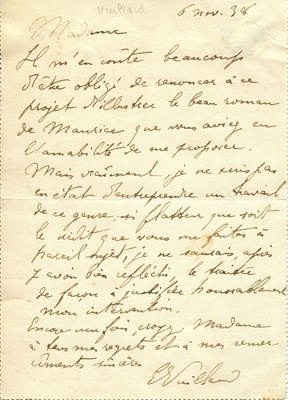 Vuillard
6 nov. 38
Madame
Il m'en coûte beaucoup
d'être obligé de renoncer à ce
projet d'illustrer le beau roman
de Maurice que vous aviez eu
l'amabilité de me proposer.
Mais vraiment, je ne suis pas
en état d'entreprendre un travail
de ce genre, si flatteur que soit
le crédit que vous me faites à
pareil sujet; je ne saurais, après
y avoir bien réfléchi, le traiter
de façon à justifier honorablement
mon intervention.
Encore une fois, croyez, Madame
à tous mes regrets et à mes remer
ciements sincères
E Vuillard